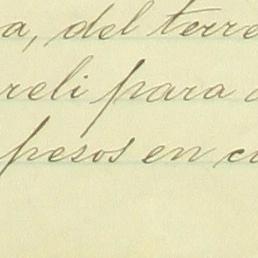 a, del terre
reli para
pesos en c